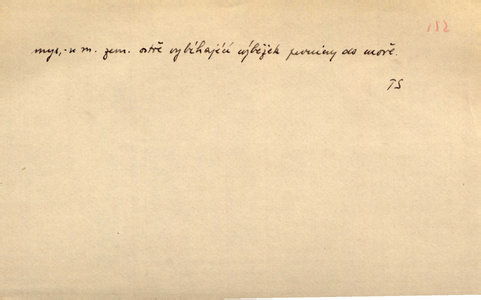 152
mys, -u m. zem. ostře vybíhající výběžek pevniny do moře.
TS